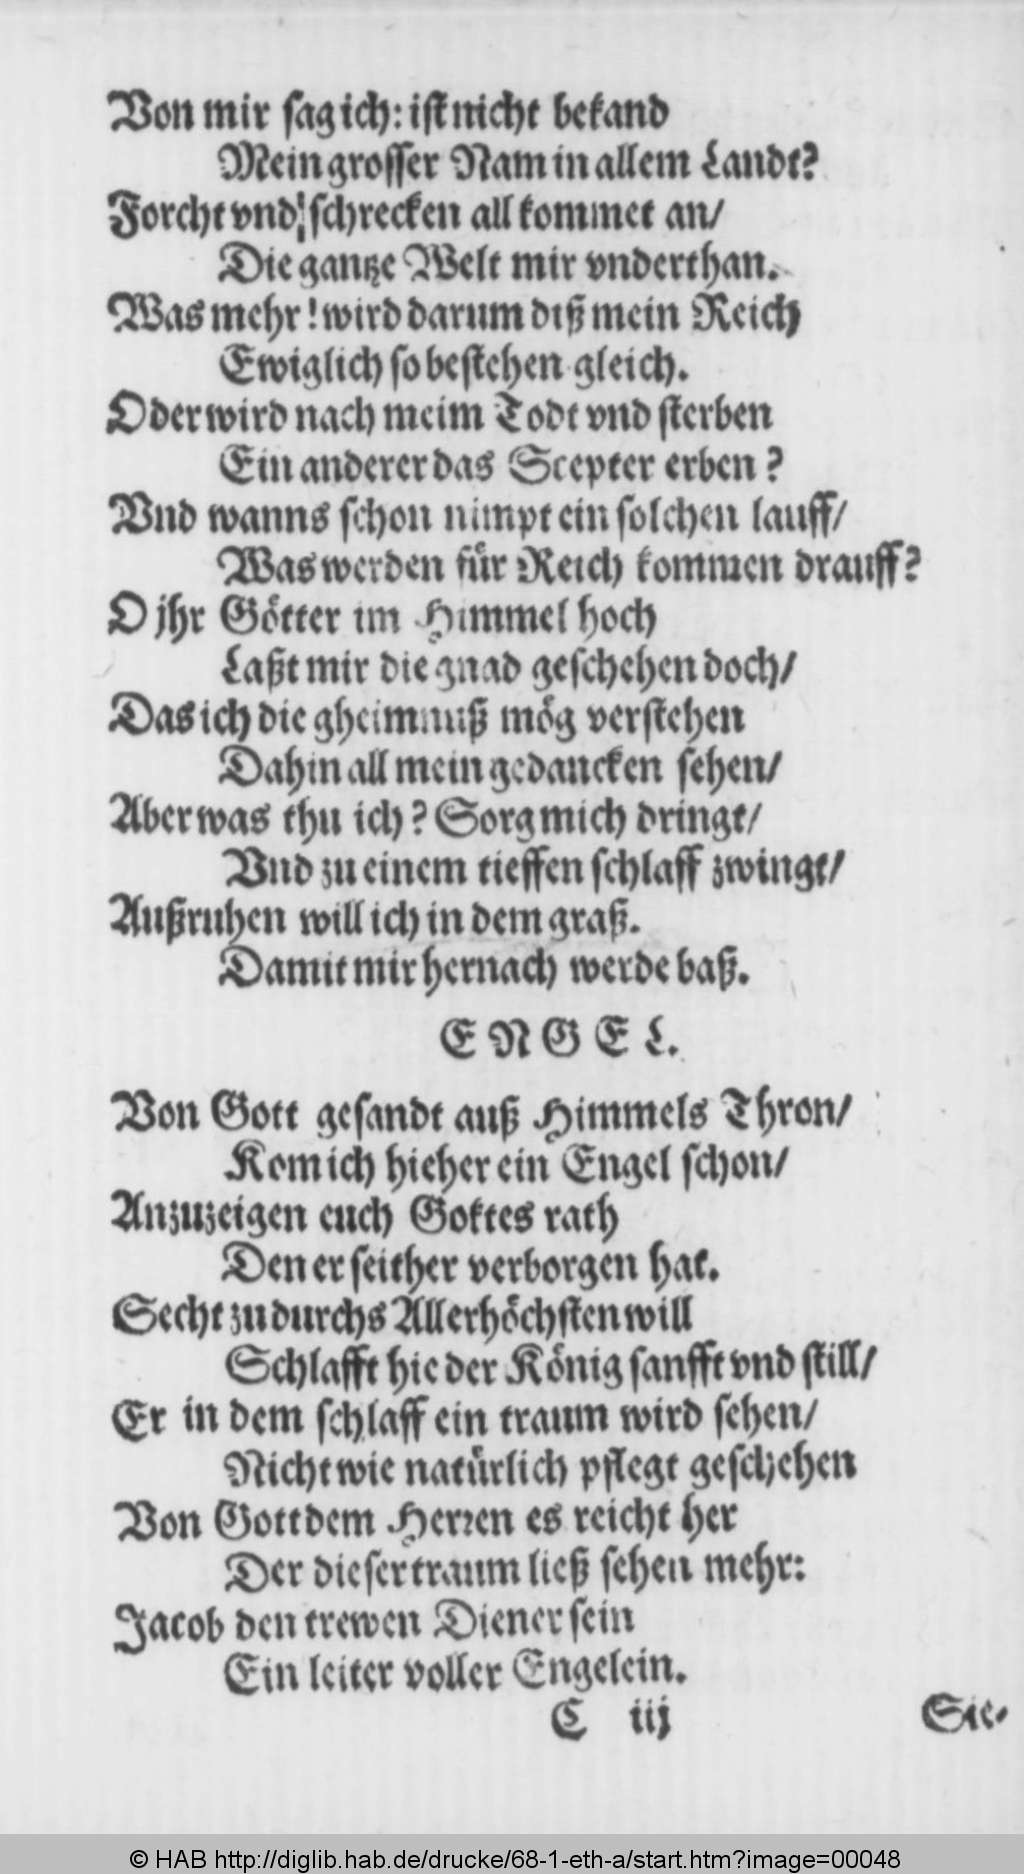 Von mir sag ich: ist nicht bekand
Mein grosser Nam in allem Landt?
Forcht vnd schrecken all kommet an/
Die gantze Welt mir vnderthan.
Was mehr! wird darum diß mein Reich
Ewiglich so bestehen gleich.
Oder wird nach meim Todt vnd sterben
Ein anderer das Scepter erben?
Vnd wanns schon nimpt ein solchen lauff/
Was werden für Reich kommen drauff?
O jhr Götter im Himmel hoch
Laßt mir die gnad geschehen doch/
Das ich die gheimnuß mög verstehen
Dahin all mein gedancken sehen/
Aber was thu ich? Sorg mich dringt/
Vnd zu einem tieffen schlaff zwingt/
Außruhen will ich in dem graß.
Damit mir hernach werde baß.
ENGEL.
Von Gott gesandt auß Himmels Thron/
Kom ich hieher ein Engel schon/
Anzuzeigen euch Gottes rath
Den er seither verborgen hat.
Secht zu durchs Allerhöchsten will
Schlafft hie der König sanfft vnd still/
Er in dem schlaff ein traum wird sehen/
Nicht wie natürlich pflegt geschehen
Von Gott dem Herren es reicht her
Der dieser traum ließ sehen mehr:
Jacob den trewen Diener sein
Ein leiter voller Engelein.
C iij Sie-
© HAB http://diglib.hab.de/drucke/68-1-eth-a/start.htm?image=00048